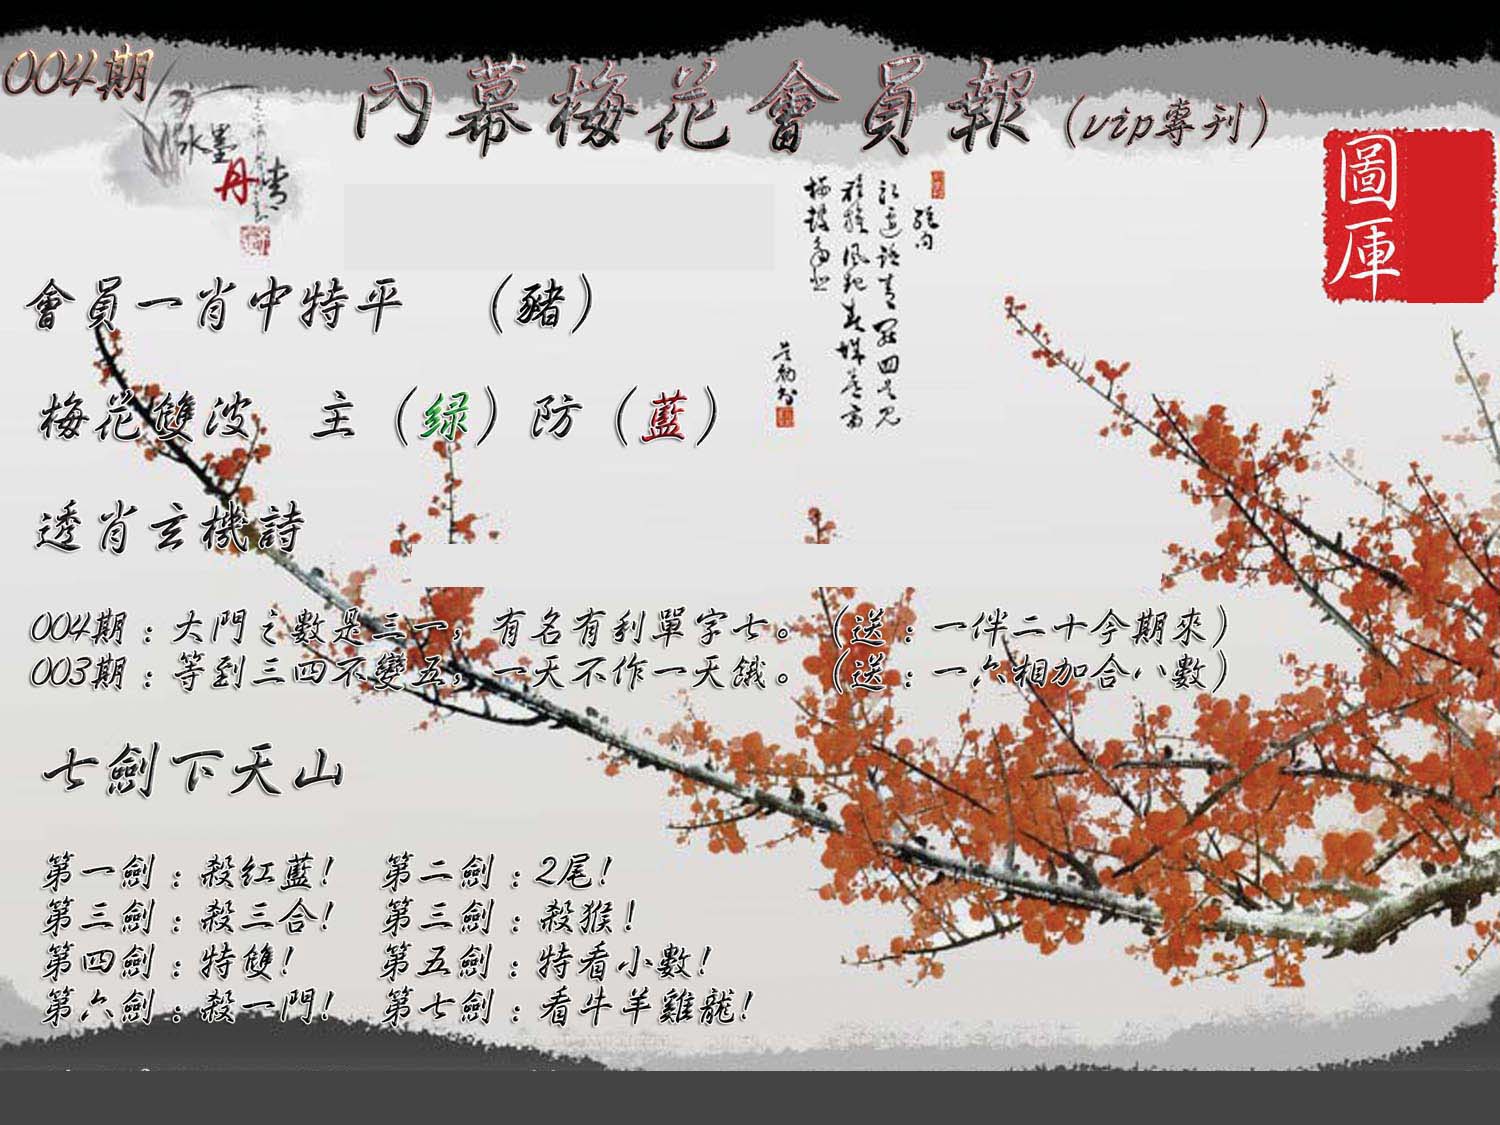 004期
內幕梅花會員報（vip專刊）
水墨
丹青
圖
庫
會員一肖中特平　（豬）
梅花雙波　主（绿）防（藍）
透肖玄機詩
004期：大門之數是三一，有名有利單字七。（送：一伴二十今期來）
003期：等到三四不變五，一天不作一天餓。（送：一六相加合八數）
七劍下天山
第一劍：殺紅藍！　第二劍：2尾！
第三劍：殺三合！　第三劍：殺猴！
第四劍：特雙！　第五劍：特看小數！
第六劍：殺一門！　第七劍：看牛羊雞龍！